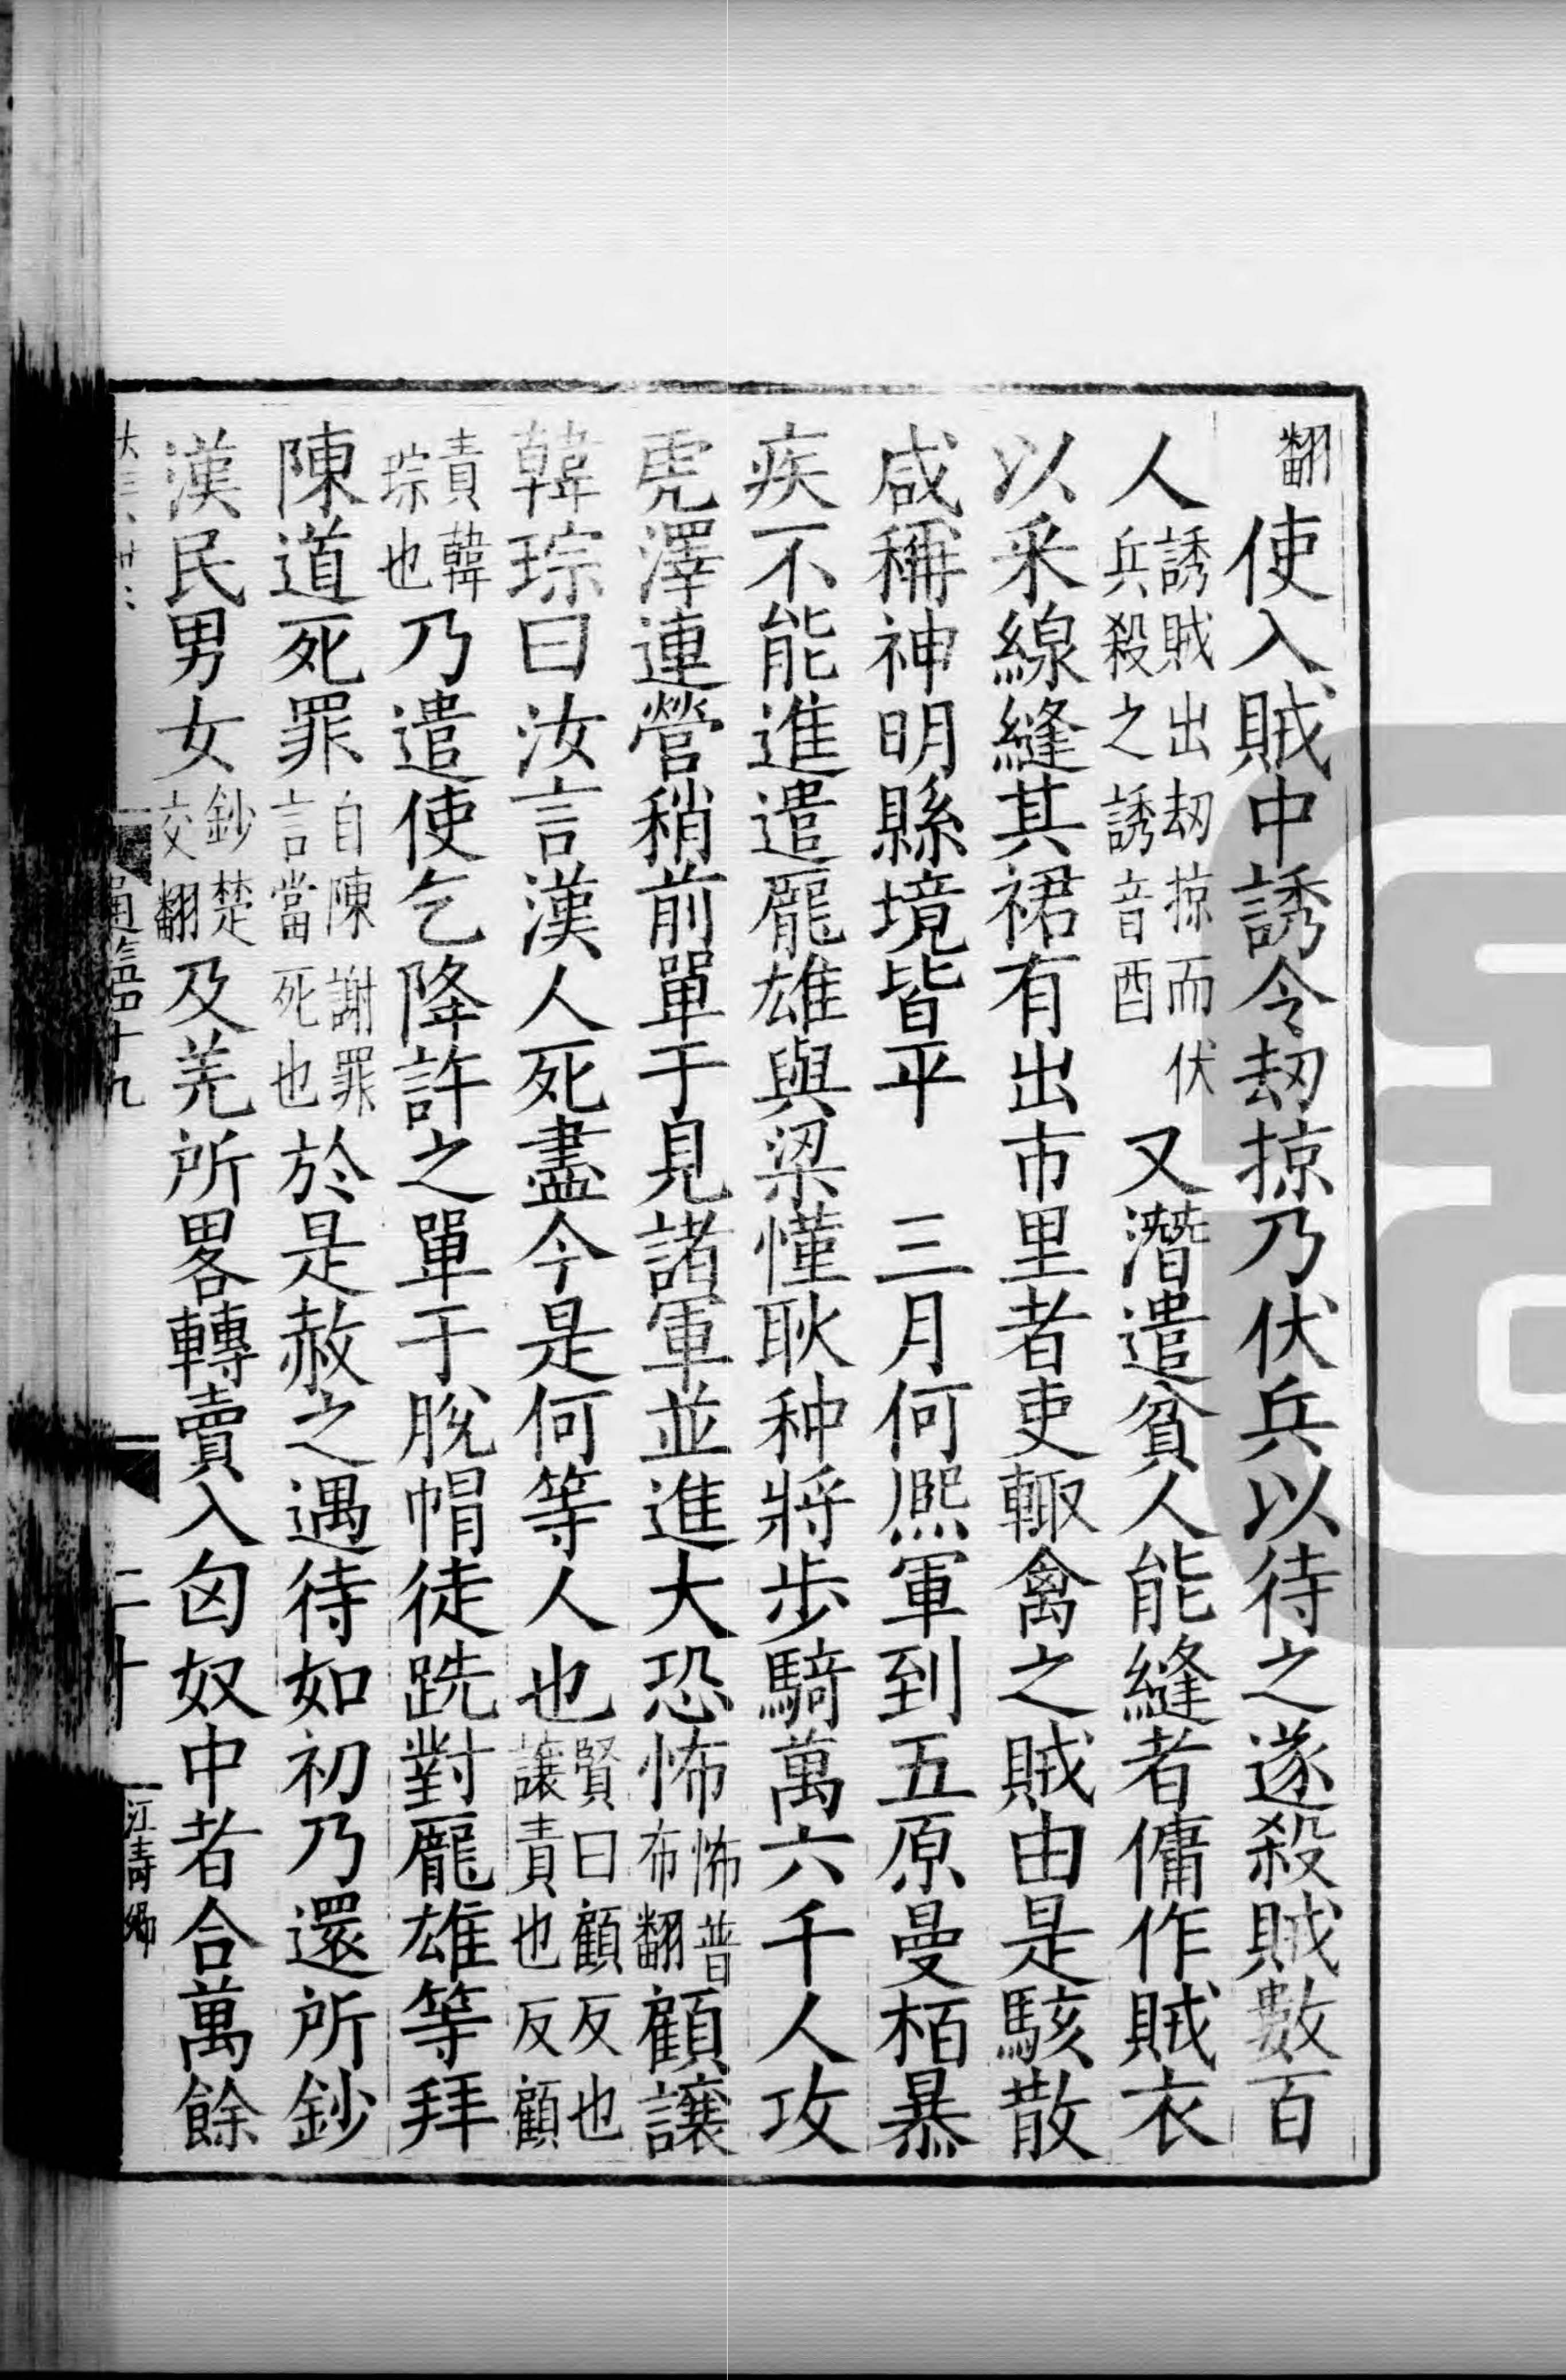 翻使入賊中誘令刼掠乃伏兵以待之遂殺賊數百
人誘賊出刼掠而伏兵殺之誘音酉又潛遣貧人能縫者傭作賊衣
以采線縫其裙有出市里者吏輙禽之賊由是駭散
咸稱神明縣境皆平　三月何熈軍到五原曼栢暴
疾不能進遣龎雄與梁慬耿种將步騎萬六千人攻
虎澤連營稍前單于見諸軍並進大恐怖怖普布翻顧讓
韓琮曰汝言漢人死盡今是何等人也賢曰顧反也讓責也反顧
責韓琮也乃遣使乞降許之單于脫帽徒跣對龎雄等拜
陳道死罪自陳謝罪言當死也於是赦之遇待如初乃還所鈔
漢民男女鈔楚交翻及羌所畧轉賣入匈奴中者合萬餘
通鑑四十九
二十
江壽鄉